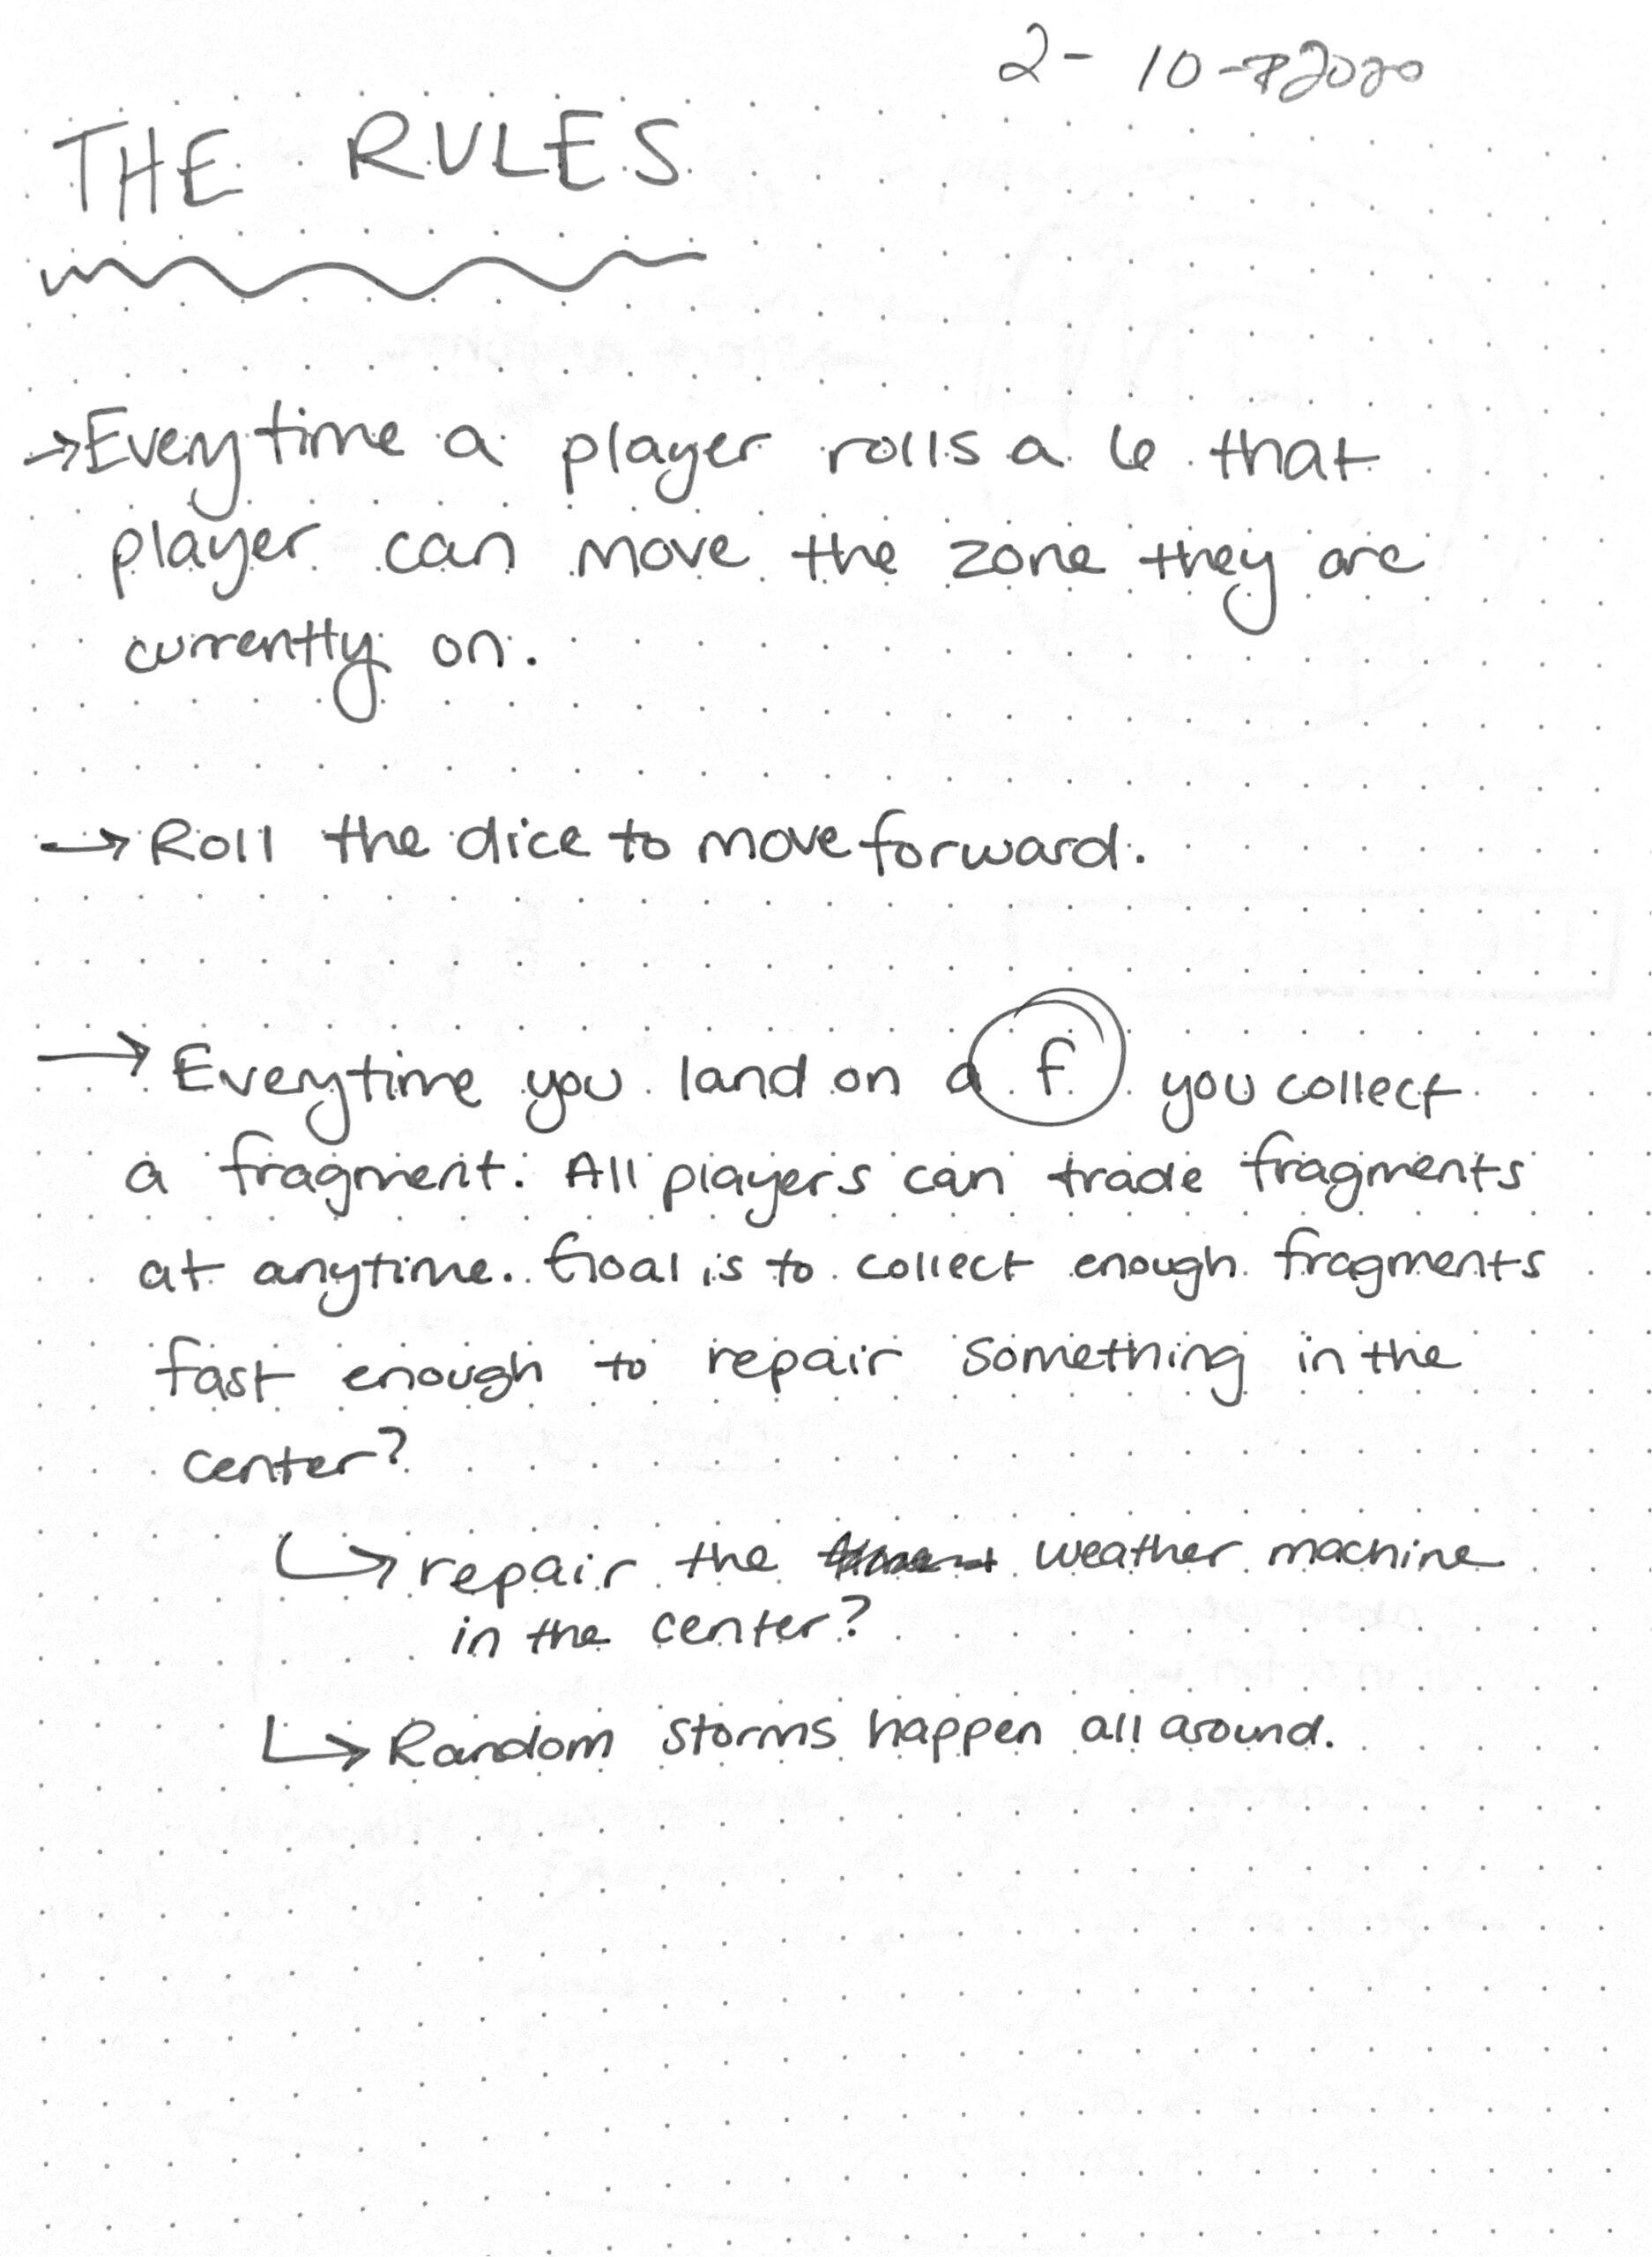 2-10-2020
THE RULES
→Everytime a player rolls a 6 that
player can move the zone they are
currently on.
→Roll the dice to move forward.
→Everytime you land on a f you collect
a fragment. All players can trade fragments
at anytime. Goal is to collect enough fragments
fast enough to repair something in the
center?
↳repair the weather machine
in the center?
↳Random storms happen all around.